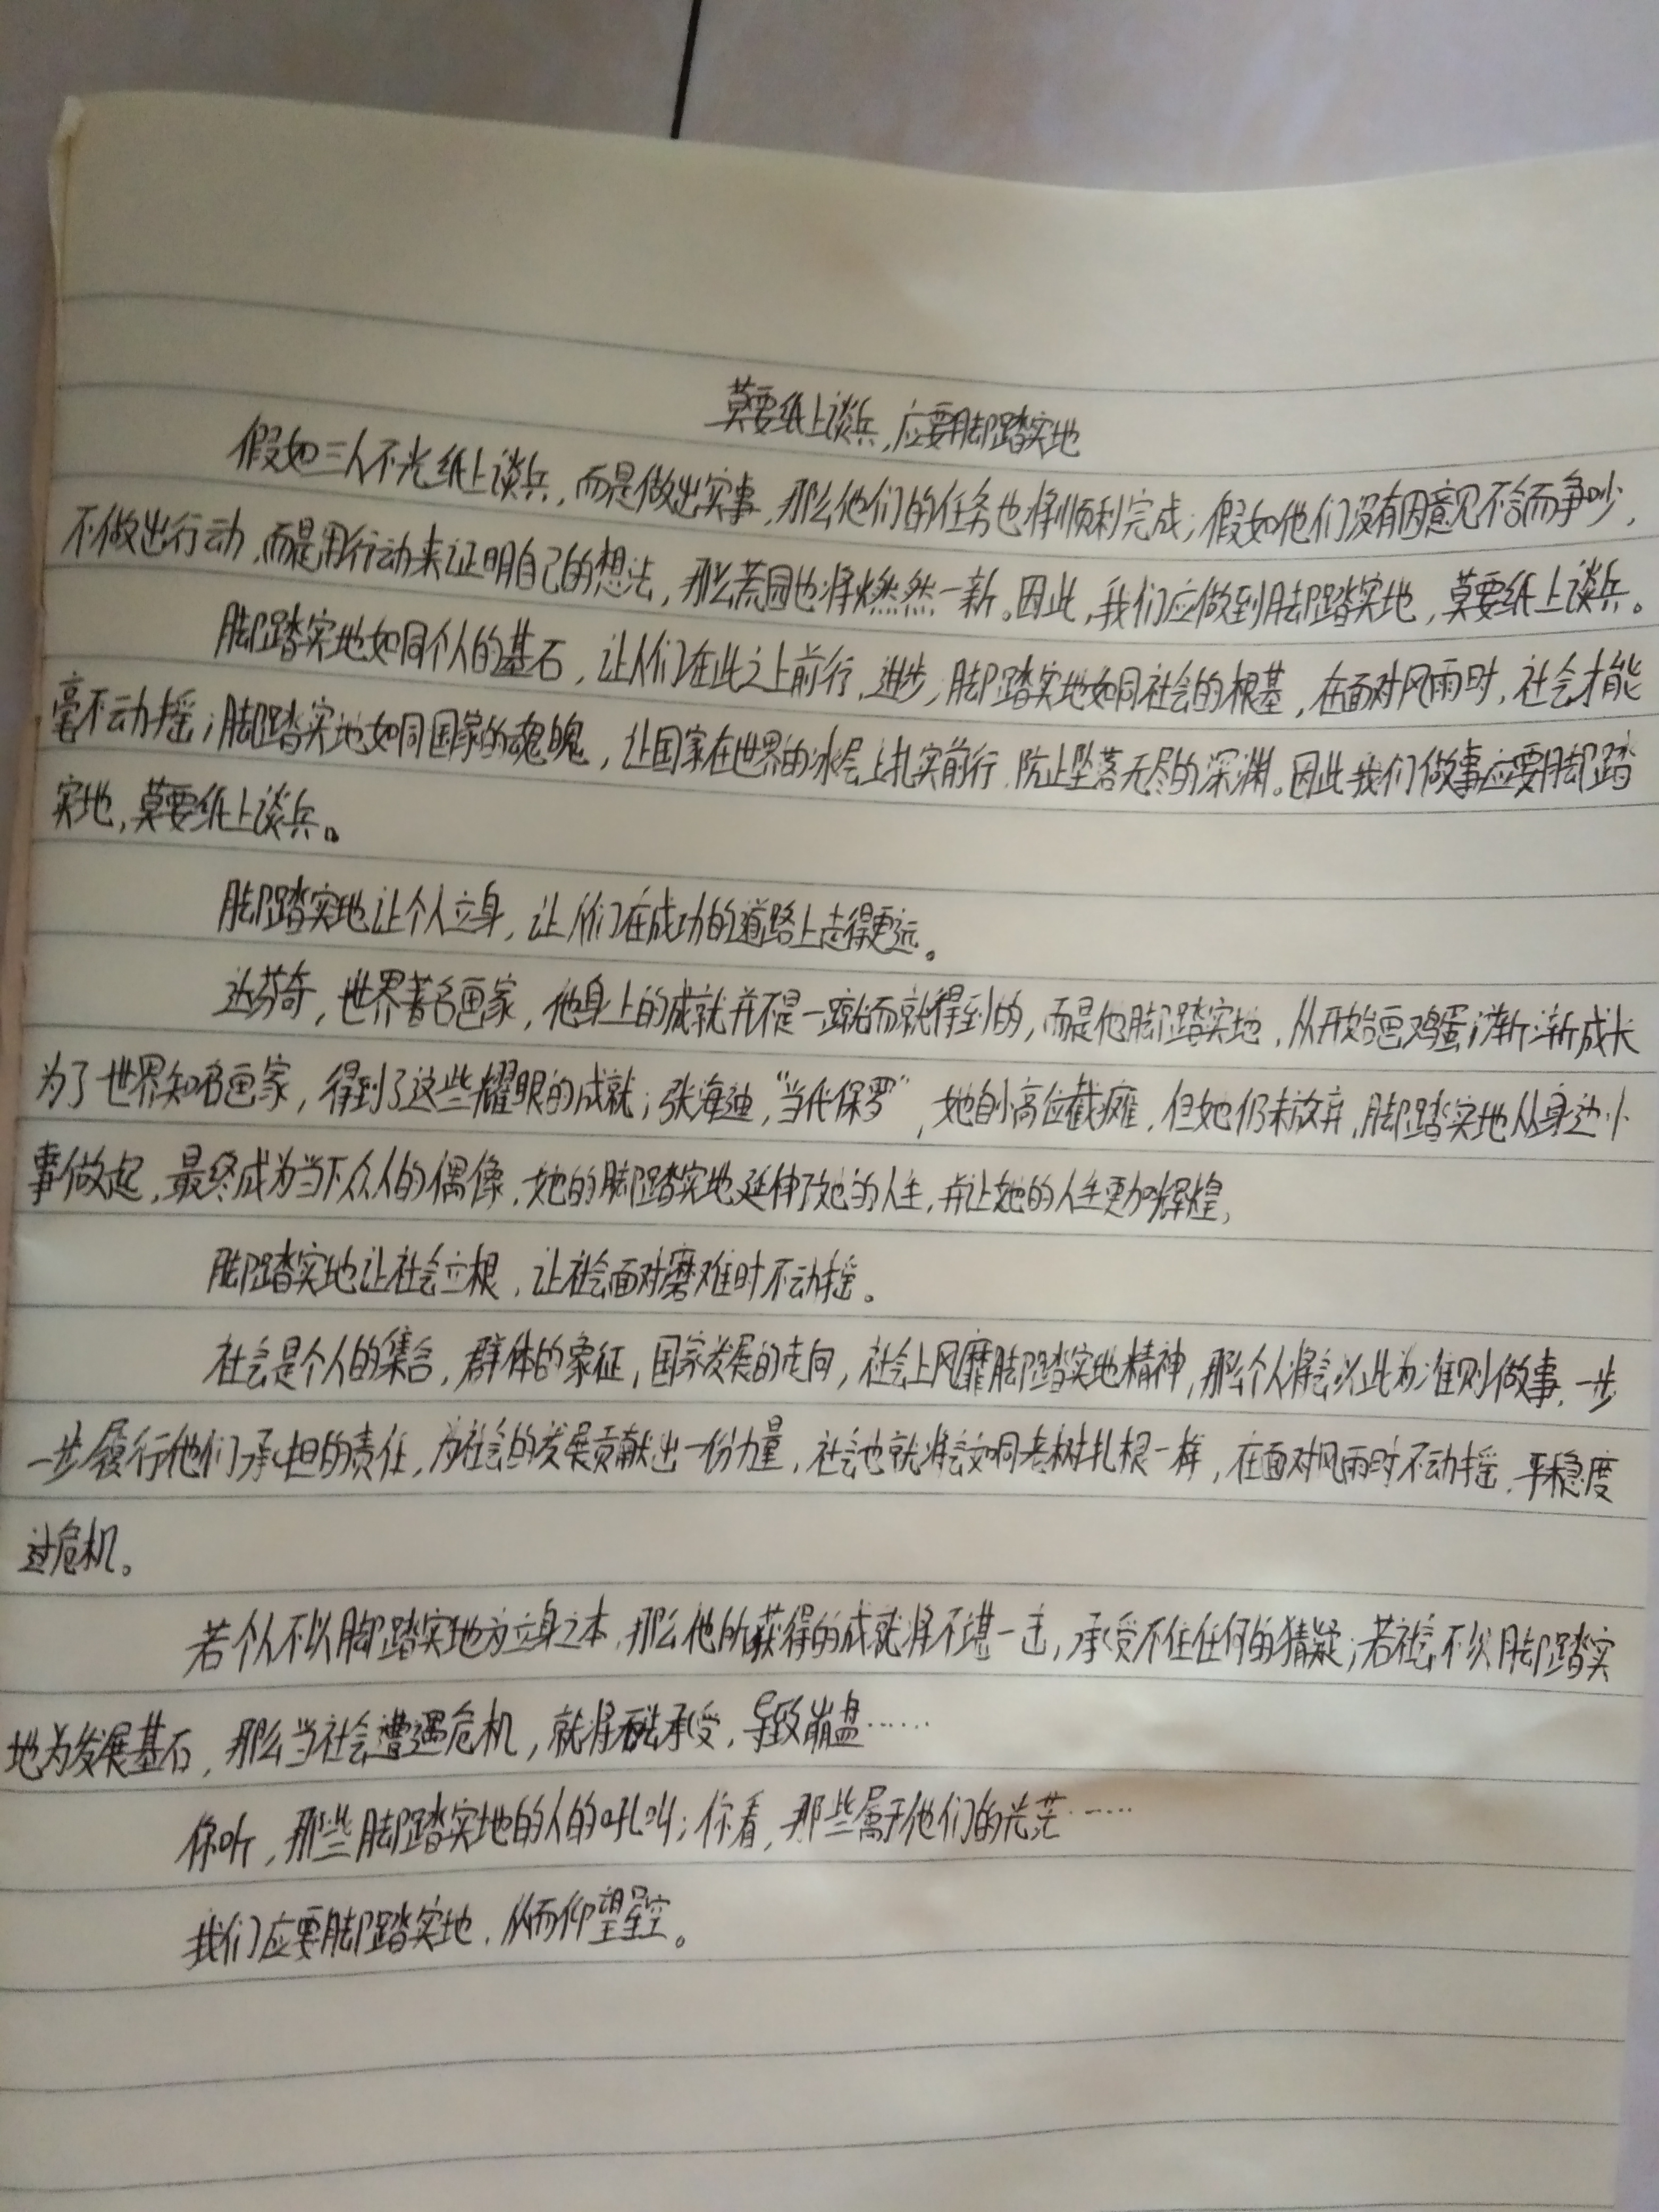 莫要纸上谈兵,应要脚踏实地
假如三人不光纸上谈兵,而是做出实事,那么他们的任务也将顺利完成;假如他们没有因意见不合而争吵,
不做出行动,而是用行动来证明自己的想法,那么荒园也将燃然一新。因此,我们应做到脚踏实地,莫要纸上谈兵。
脚踏实地如同个人的基石,让人们在此之上前行,进步;脚踏实地如同社会的根基,在面对风雨时,社会才能
毫不动摇;脚踏实地如同国家的魂魄,让国家在世界的冰层上扎实前行,防止坠落无尽的深渊。因此我们做事应要脚踏
实地,莫要纸上谈兵。
脚踏实地让个人立身,让人们在成功的道路上走得更远。
达芬奇,世界著名画家,他身上的成就并不是一蹴而就得到的,而是他脚踏实地,从开始画鸡蛋渐渐成长
为了世界知名画家,得到了这些耀眼的成就;张海迪,“当代保罗”,她自小高位截瘫,但她仍未放弃,脚踏实地从身边小
事做起,最终成为当下众人的偶像,她的脚踏实地延伸了她的人生,并让她的人生更加辉煌,
脚踏实地让社会立根,让社会面对磨难时不动摇。
社会是个人的集合,群体的象征,国家发展的走向,社会上风靡脚踏实地精神,那么个人将会以此为准则做事,一步
一步履行他们承担的责任,为社会的发展贡献出一份力量,社会也就将会如同老树扎根一样,在面对风雨时不动摇,平稳度
过危机。
若个人不以脚踏实地为立身之本,那么他所获得的成就将不堪一击,承受不住任何的猜疑;若社会不以脚踏实
地为发展基石,那么当社会遭遇危机,就将承受,导致崩盘……
你听,那些脚踏实地的人的吼叫;你看,那些属于他们的光芒……
我们应要脚踏实地,从而仰望星空。